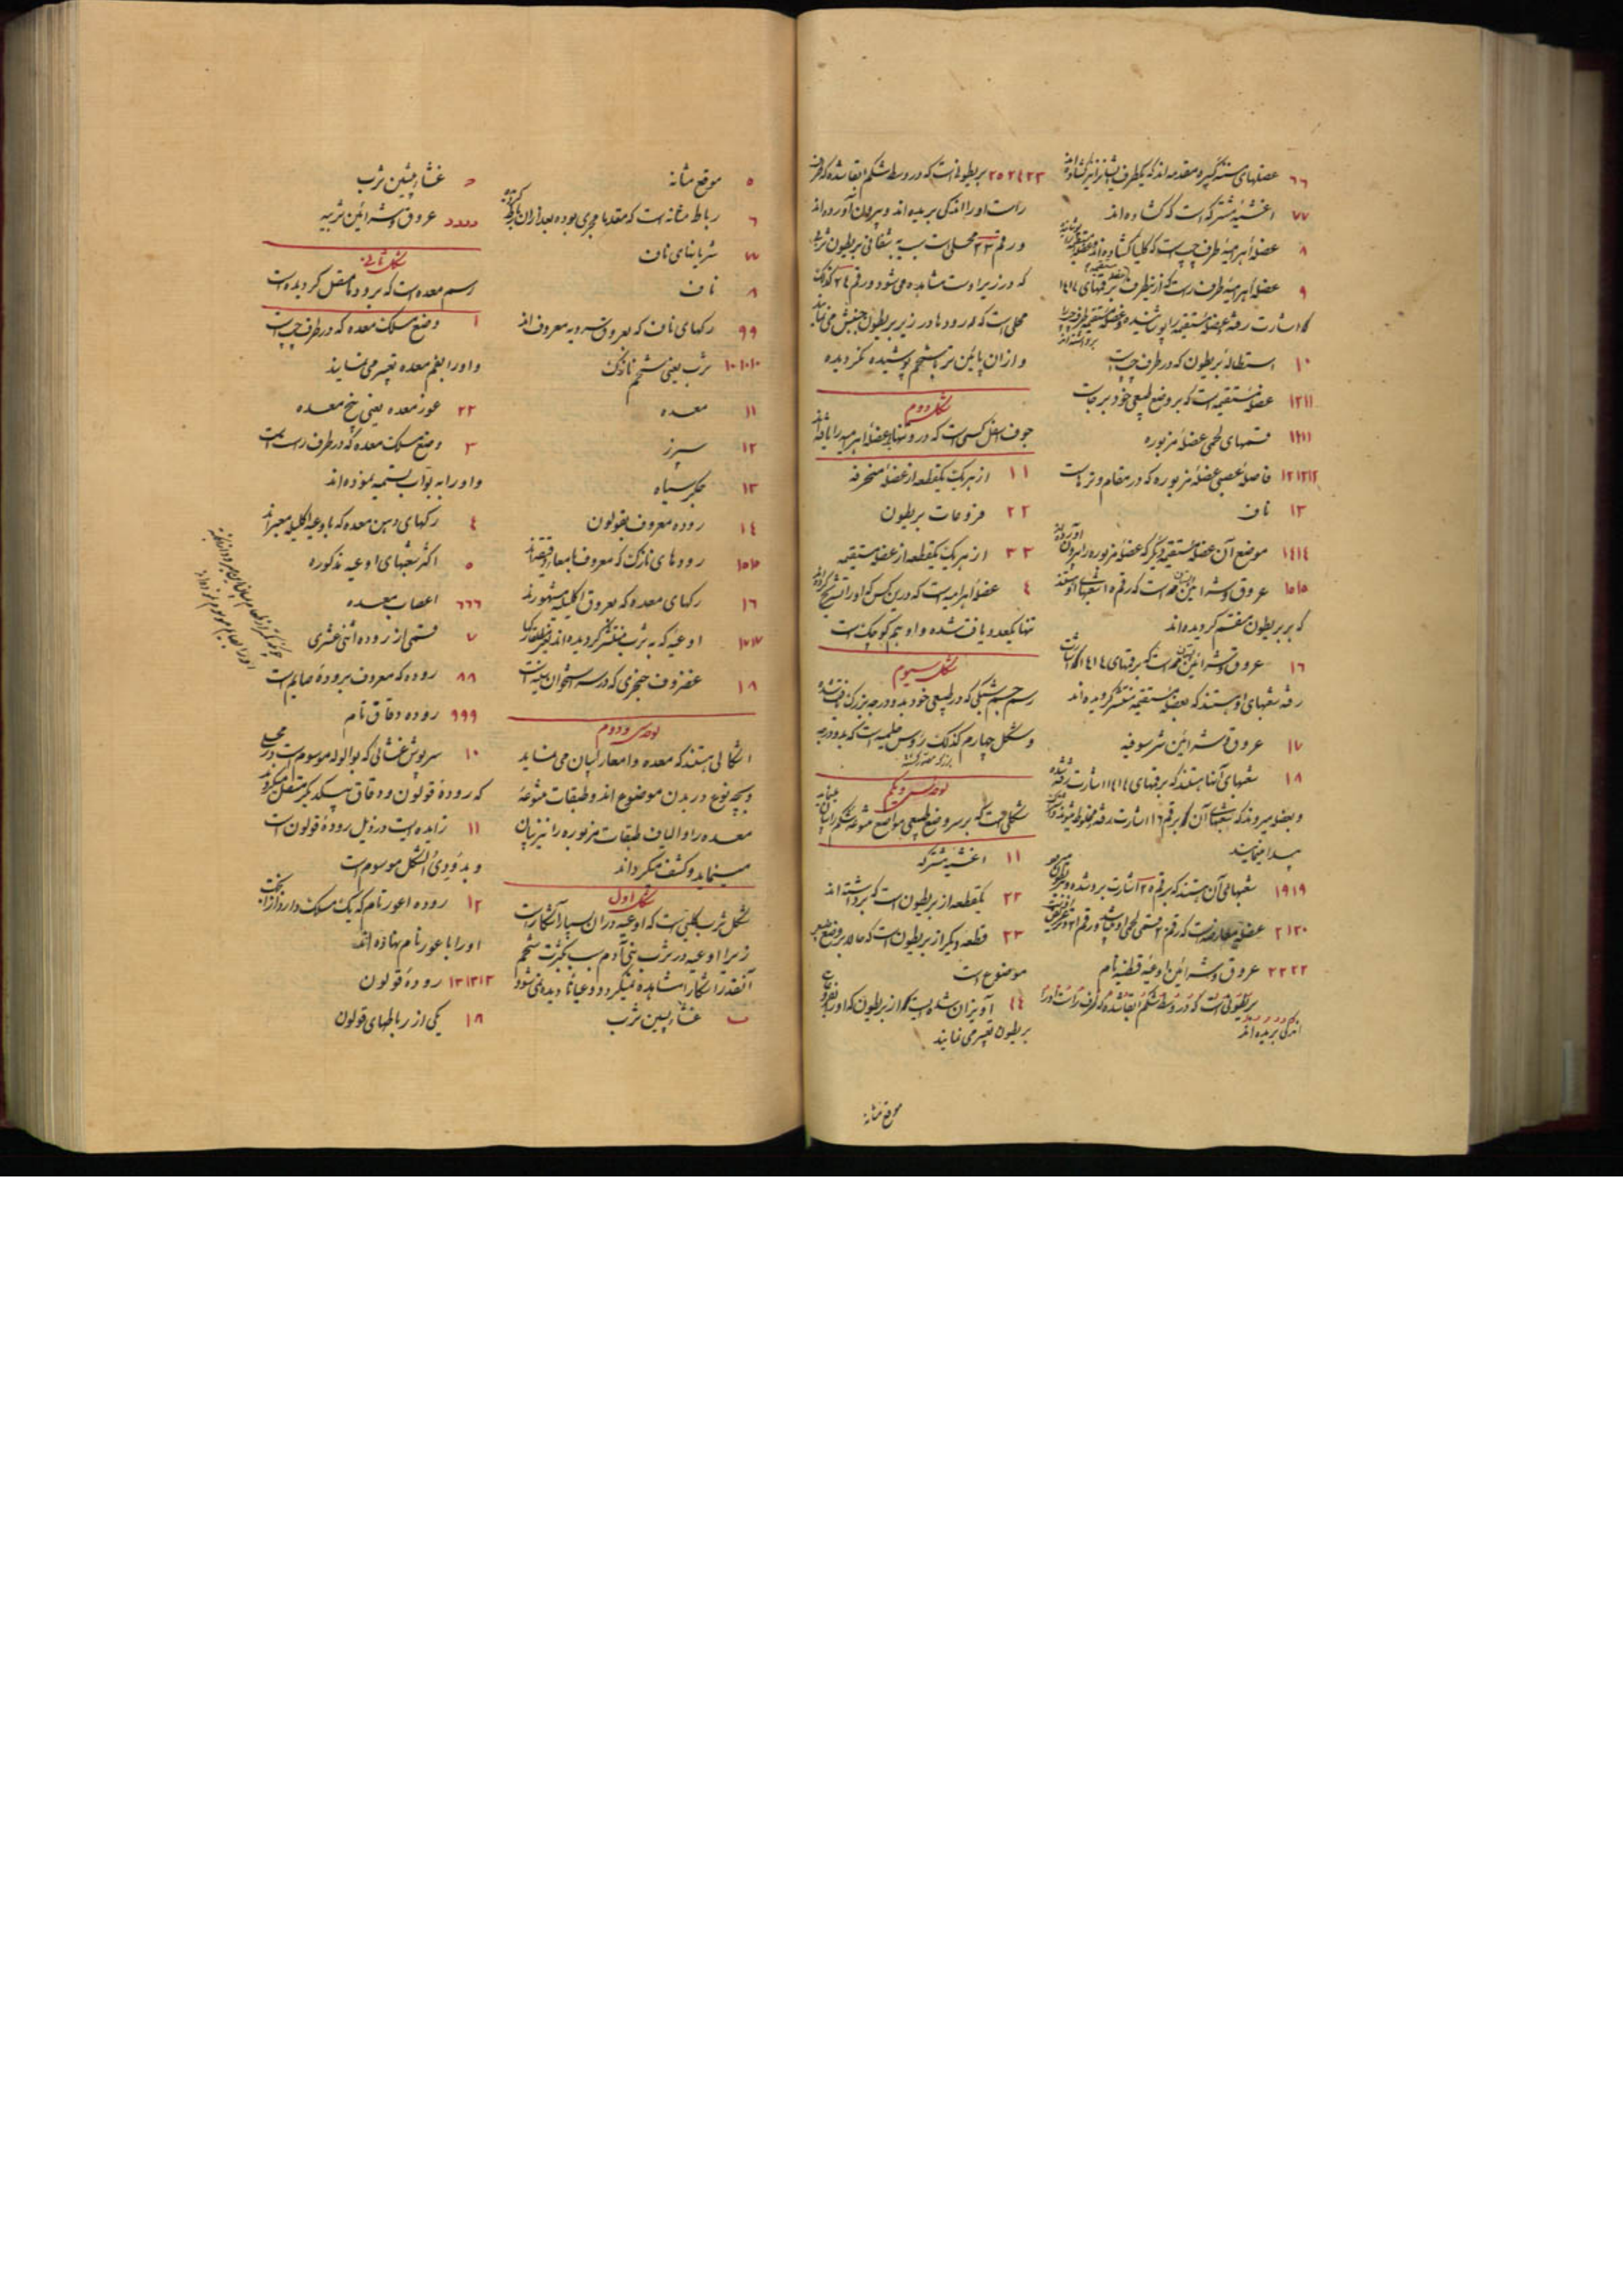 ٦٦ عضلهای مستدیره مقدمه اند که یکطرف
٧٧ اغشیهٔ مشترکه است که کشاده اند
٨ عضلهٔ اهرامیهٔ طرف چپ است که کلیا کشاده
٩ عضلهٔ اهرامیهٔ طرف راست که از نیطرف برقمهای ١٤١٤
اشارت رفته عضلهٔ مستقیمه را پوشانیده
١٠ استطالهٔ بریطون که در طرف چپ است
١٢١١ عضلهٔ مستقیمه است که بر وضع طبیعی خود برجاست
١١١١ قسمهای لحمی عضلهٔ مزبوره
١٢١٢١٢ فاصلهٔ عصبی عضلهٔ مزبوره که در مقام وتر است
١٣ ناف
١٤١٤ موضع آن عضلهٔ مستقیمه دیگر که عضلهٔ مزبوره را بیرون آورده اند
١٥١٥ عروق و شرائین است که رقم ٥ شعبهای
که بر بریطون منقسم کردیده اند
١٦ عروق و شرائین است که برقمهای ١٤١٤ اشارت
رفته شعبهای او هستند که بعضلهٔ مستقیمه منتشر کردیده اند
١٧ عروق و شرائین شرسوفیه
١٨ شعبهای آنها هستند که برقمهای ١٤١٤ اشارت رفته شده
و بعضله میروند که بشعبهای آن که برقم ١٦ اشارت رفته مخلوط میشوند
پیدا مینمایند
١٩١٩ شعبهای آن هستند که برقم ٢٥ اشارت برده شده
٢١٢٠ عضلهٔ معارضه است که رقم ٢٠ قسمی لحمی او و رقم ٢١
٢٢٢٢ عروق و شرائین با اوعیهٔ قطنیه نام
بریطونی است که در وسط شکم ابقا شده که طرف راست او را
اندکی بریده اند
٢٥٢٤٢٣ بریطونی است که در وسط شکم ابقا شده که طرف
راست او را اندکی بریده اند و بیرون آورده اند
و رقم ٢٣ محلی است بسبب شفافی بریطون ثرب
که در زیر اوست مشاهده می شود و رقم ٢٤ کذلک
محلی است که روده ها در زیر بریطون جنبش می نمایند
و از آن پائین تر با شحم پوشیده نکردیده
شکل دوم
جوف اسفل کسی است که در وی تنها یکعضلهٔ اهرامیه را یافته اند
١١ از هریک یکقطعه از عضلهٔ منحرفه
٢٢ فروعات بریطون
٣٣ از هریک یکقطعه از عضلهٔ مستقیمه
٤ عضلهٔ اهرامیه است که درین کس که او را تشریح کرده اند
تنها یکعدد یافت شده و او هم کوچک است
شکل سیوم
رسم جسم شبکی که در طبیعی خود بدو درجه بزرگ یافت شده
و شکل چهارم کذلک رؤس حلمیه است که بدو درجه
بزرگی مصور کشته
لوحهٔ سی و یکم
شکلی است که بر سر وضع طبیعی مواضع متنوعهٔ شکم را بیان مینماید
١١ اغشیهٔ مشترکه
٢٢ یکقطعه از بریطون است که برداشته اند
٢٣ قطعهٔ دیگر از بریطون است که حالا بر وضع طبیعی
موضوع است
٤٤ آویزان شده ایست که از بریطون که او را بفروع
بریطون تعبیر می نمایند
موقع مثانه
٥ موقع مثانه
٦ رباط مثانه است که مقدما مجری بوده بعد از آن رباط کشته
٧ شریانهای ناف
٨ ناف
٩٩ رکهای ناف که بعروق سرویه معروف اند
١٠١٠١٠ ثرب یعنی شحم نازک
١١ معده
١٢ سپرز
١٣ جگر سیاه
١٤ رودهٔ معروف بقولون
١٥١٥ رودهای نازک که معروف بامعاء دقیقه اند
١٦ رکهای معده که بعروق اکلیلیه مشهورند
١٧١٧ اوعیهٔ که به ثرب منتشر کردیده اند
١٨ غضروف خنجری که در سر استخوان سینه است
لوحهٔ سی و دوم
اشکالی هستند که معده و امعا را بیان می نماید
و بچه نوع در بدن موضوع اند و طبقات متنوعهٔ
معده را و الیاف طبقات مزبوره را نیز بیان
مینماید و کشف میکرداند
شکل اول
شکل ثرب کلبی است که اوعیه در آن بسیار آشکار است
زیرا اوعیه در ثرب بنی آدم بسبب کثرت شحم
آنقدر آشکارا مشاهده نمیکردد و عیاناً دیده نمی شود
ب غشاء پسین ثرب
د غشاء پیشین ثرب
دددد عروق و شرائین ثربیه
شکل ثانی
رسم معده است که بروده ها متصل کردیده است
١ وضع مسلک معده که در طرف چپ است
و او را بفم معده تعبیر می نمایند
٢٢ غور معده یعنی بیخ معده
٣ وضع مسلک معده که در طرف راست است
و او را به بواب تسمیه نموده اند
٤ رکهای دهن معده که باوعیهٔ اکلیلیه معبر اند
٥ اکثر شعبهای اوعیهٔ مذکوره
٦٦٦ اعصاب معده
٧ قسمی از رودهٔ اثنی عشری
٨٨ روده که معروف برودهٔ صایم است
٩٩٩ رودهٔ دقاق نام
١٠ سرپوش غشائی که بوالوله موسوم است در محلی
که رودهٔ قولون و دقاق بیکدیگر متصل میکردند
١١ زایده یست در ذیل رودهٔ قولون است
و بدودی الشکل موسوم است
١٢ رودهٔ اعور نام که یک مسلک دارد از آنجهت
او را با عور نام نهاده اند
١٣١٣١٣ رودهٔ قولون
١٨ یکی از رباطهای قولون